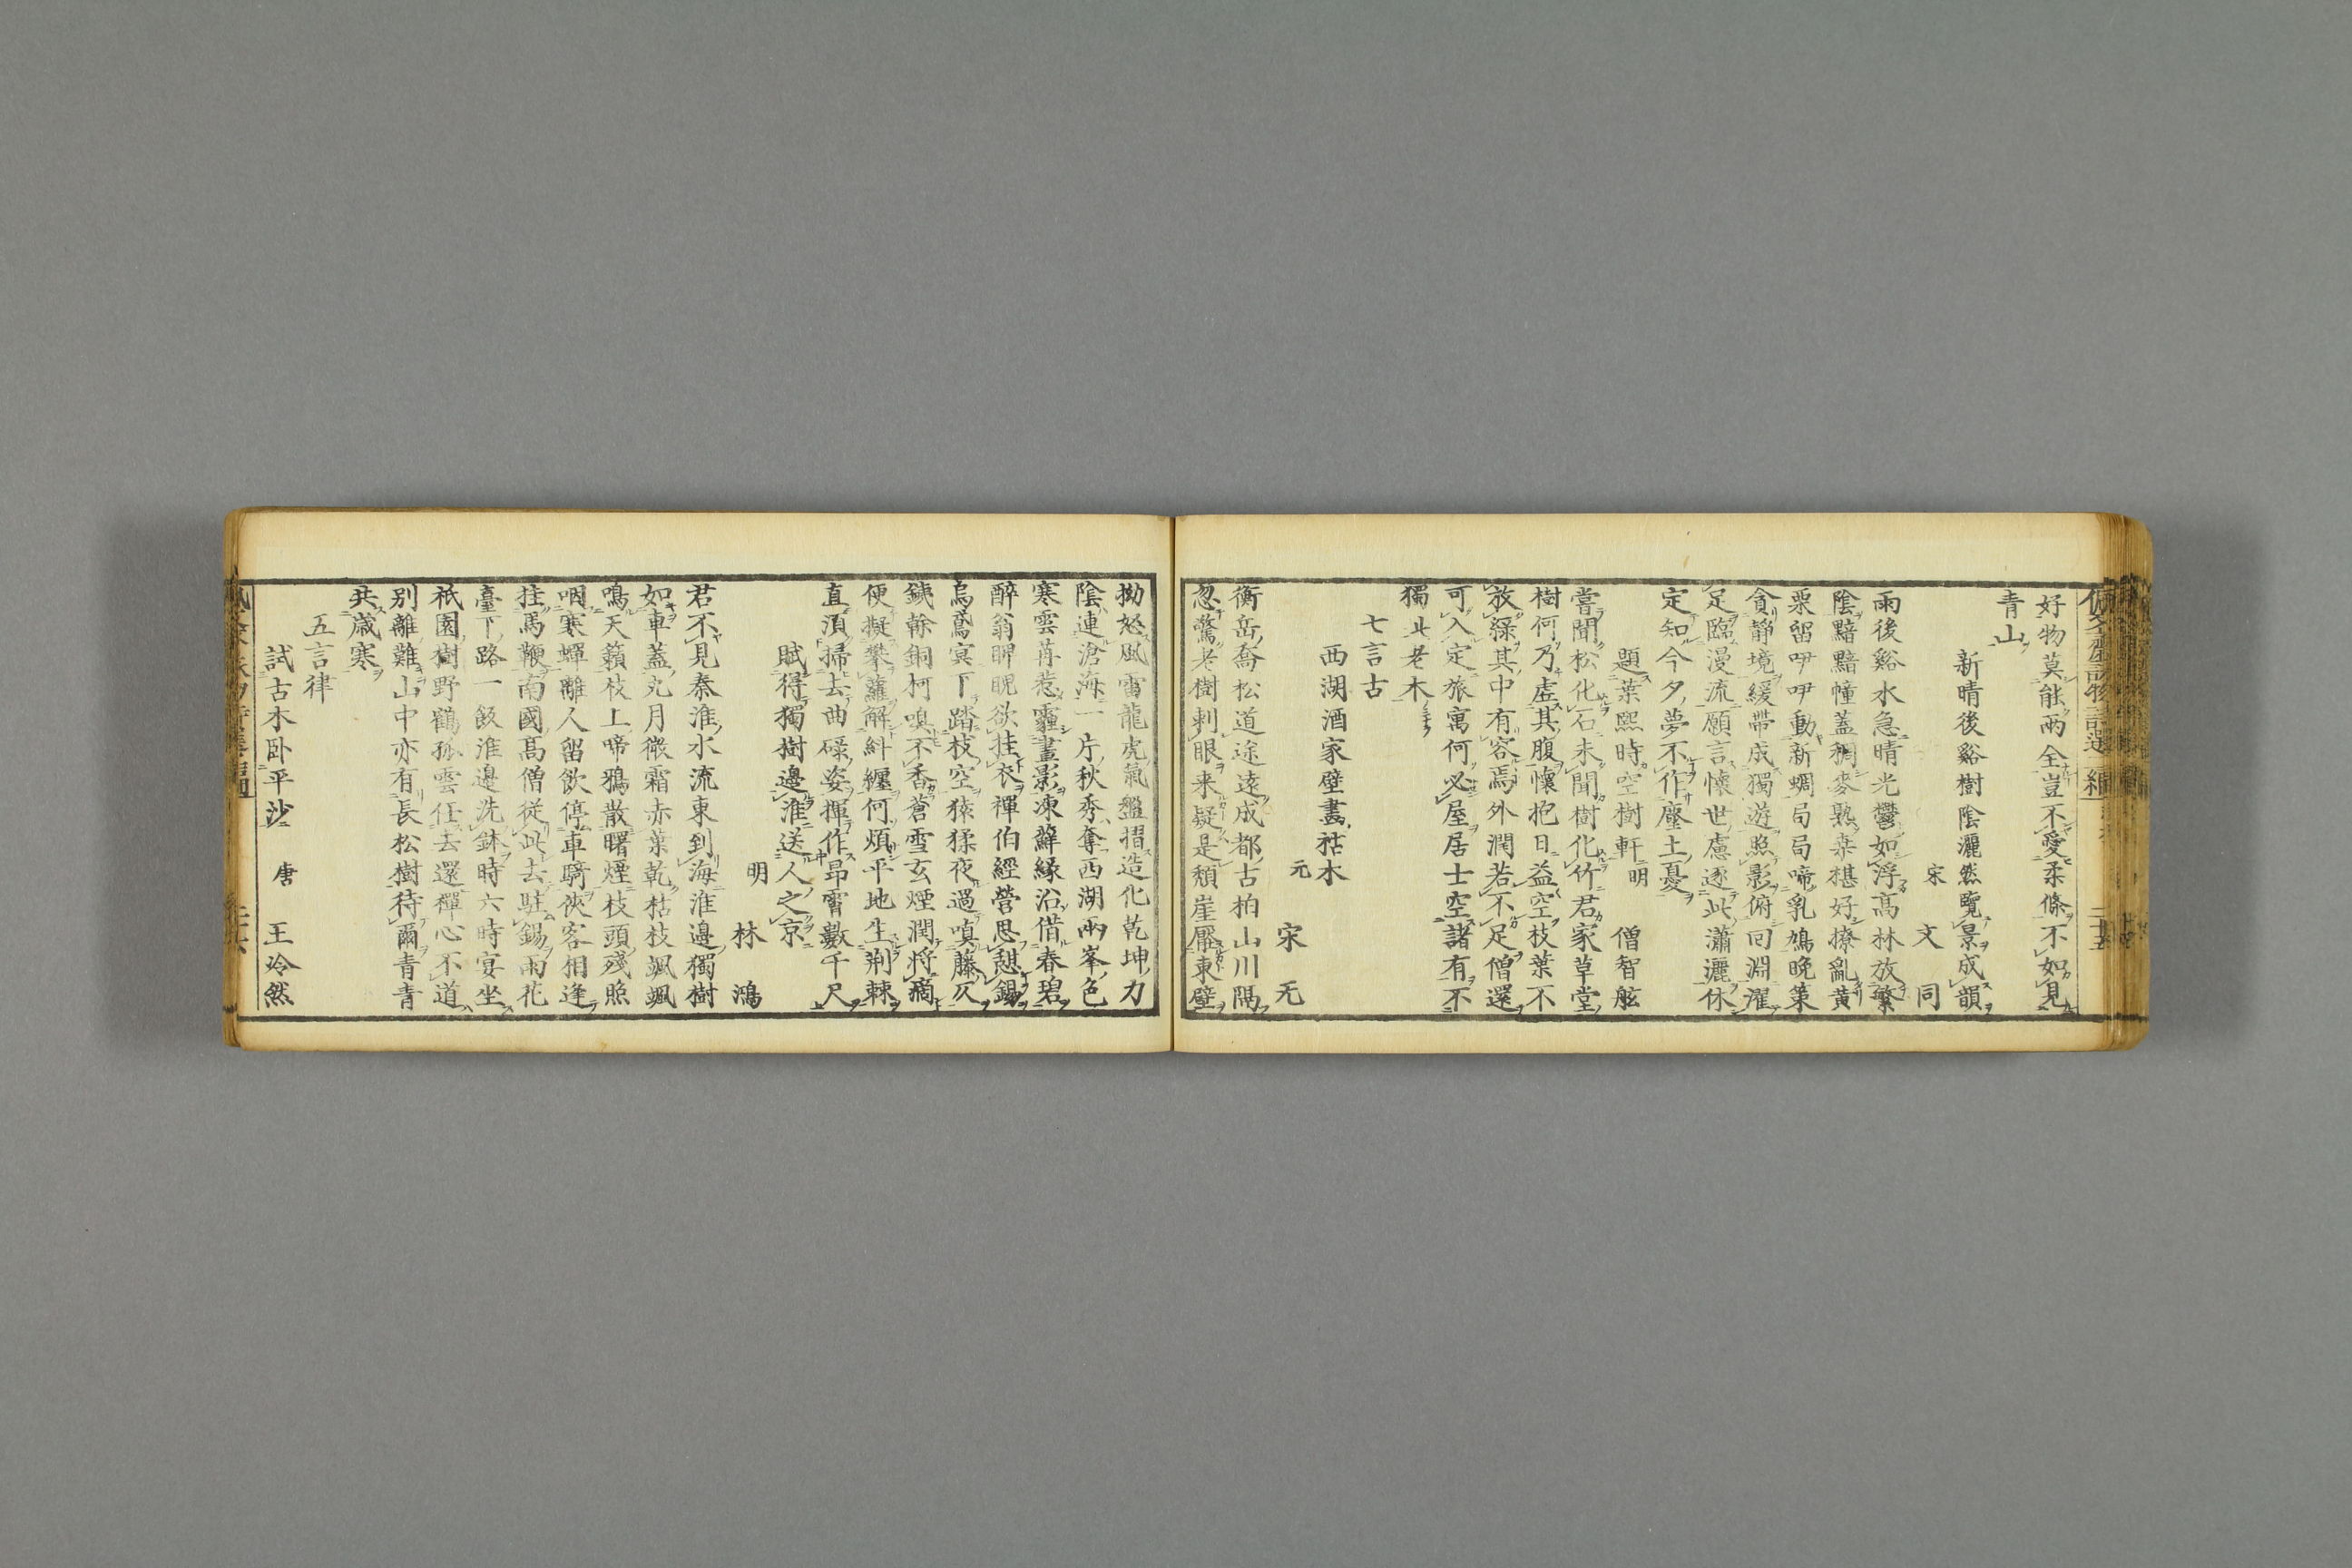 好物莫能兩全豈不愛柔條不如見
青山
新晴後谿樹陰灑然覽景成韻
宋 文同
雨後谿水急晴光鬱如浮高林放繁
陰黯黯幢蓋稠麥熟桒椹好撩亂黃
栗留咿咿動新蜩局局啼乳鳩晚策
貪靜境緩帶成獨遊照影俯回淵濯
足臨漫流願言懷世慮逐此瀟灑休
定知今夕夢不作塵土憂
題葉熙時空樹軒 明 僧智舷
嘗聞松化石未聞樹化竹君家草堂
樹何乃虛其腹懷抱日益空枝葉不
放綠其中有容焉外潤若不足僧還
可入定旅寓何必屋居士空諸有不
獨此老木
七言古
西湖酒家壁畫枯木
元 宋无
衡岳喬松道途遠成都古柏山川隔
忽驚老樹刺眼来疑是頹崖壓東壁
拗怒風雷龍虎氣盤摺造化乾坤力
陰連滄海一片秋秀奪西湖兩峯色
寒雲苒惹霾晝影凍蘚緣沿借春碧
醉翁睥睨欲挂衣禪伯經營思憇錫
烏鳶㝠下踏枝空猿猱夜過嗔藤仄
鐵榦銅柯嗅不香蒼雪玄煙潤将滴
便擬攀蘿解糾纏何煩平地生荆棘
直湏掃去曲碌姿揮作昂霄數千尺
賦得獨樹邊淮送人之京
明 林鴻
君不見秦淮水流東到海淮邊獨樹
如車蓋九月微霜赤葉乾枯枝颯颯
鳴天籟枝上啼鴉散曙煙枝頭殘照
咽寒蟬離人留飲停車騎俠客相逢
挂馬鞭南國高僧従此去駐錫雨花
臺下路一飯淮邊洗鉢時六時宴坐
祇園樹野鶴孤雲任去還禪心不道
别離難山中亦有長松樹待爾青青
共歲寒
五言律
試古木卧平沙 唐 王泠然